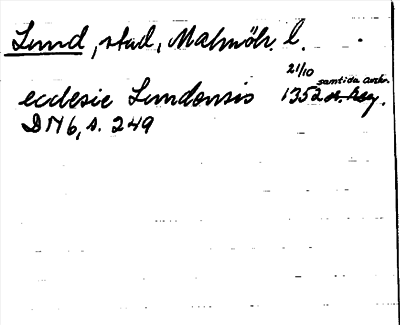 Lund, stad, Malmöh. l.
21/10 samtida avskr.
ecclesie Lundensis 1352
DN 6, s. 249